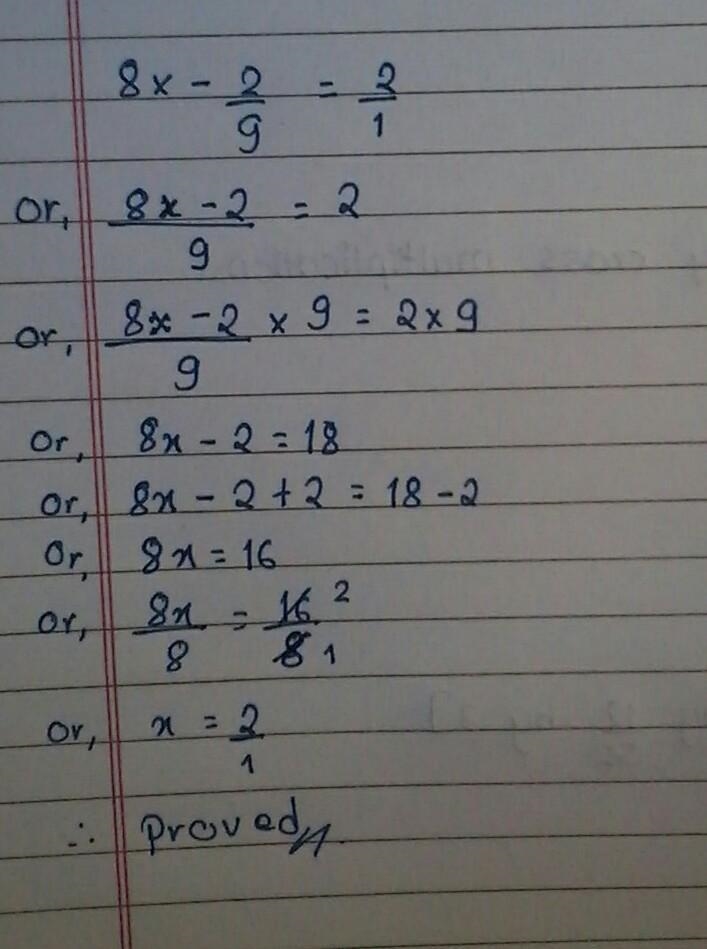 8x - 2/9 = 2/1
Or, (8x - 2)/9 = 2
Or, (8x - 2)/9 × 9 = 2 × 9
Or, 8x - 2 = 18
Or, 8x - 2 + 2 = 18 - 2
Or, 8x = 16
Or, 8x/8 = 16 2/8 1
Or, x = 2/1
∴ Proved